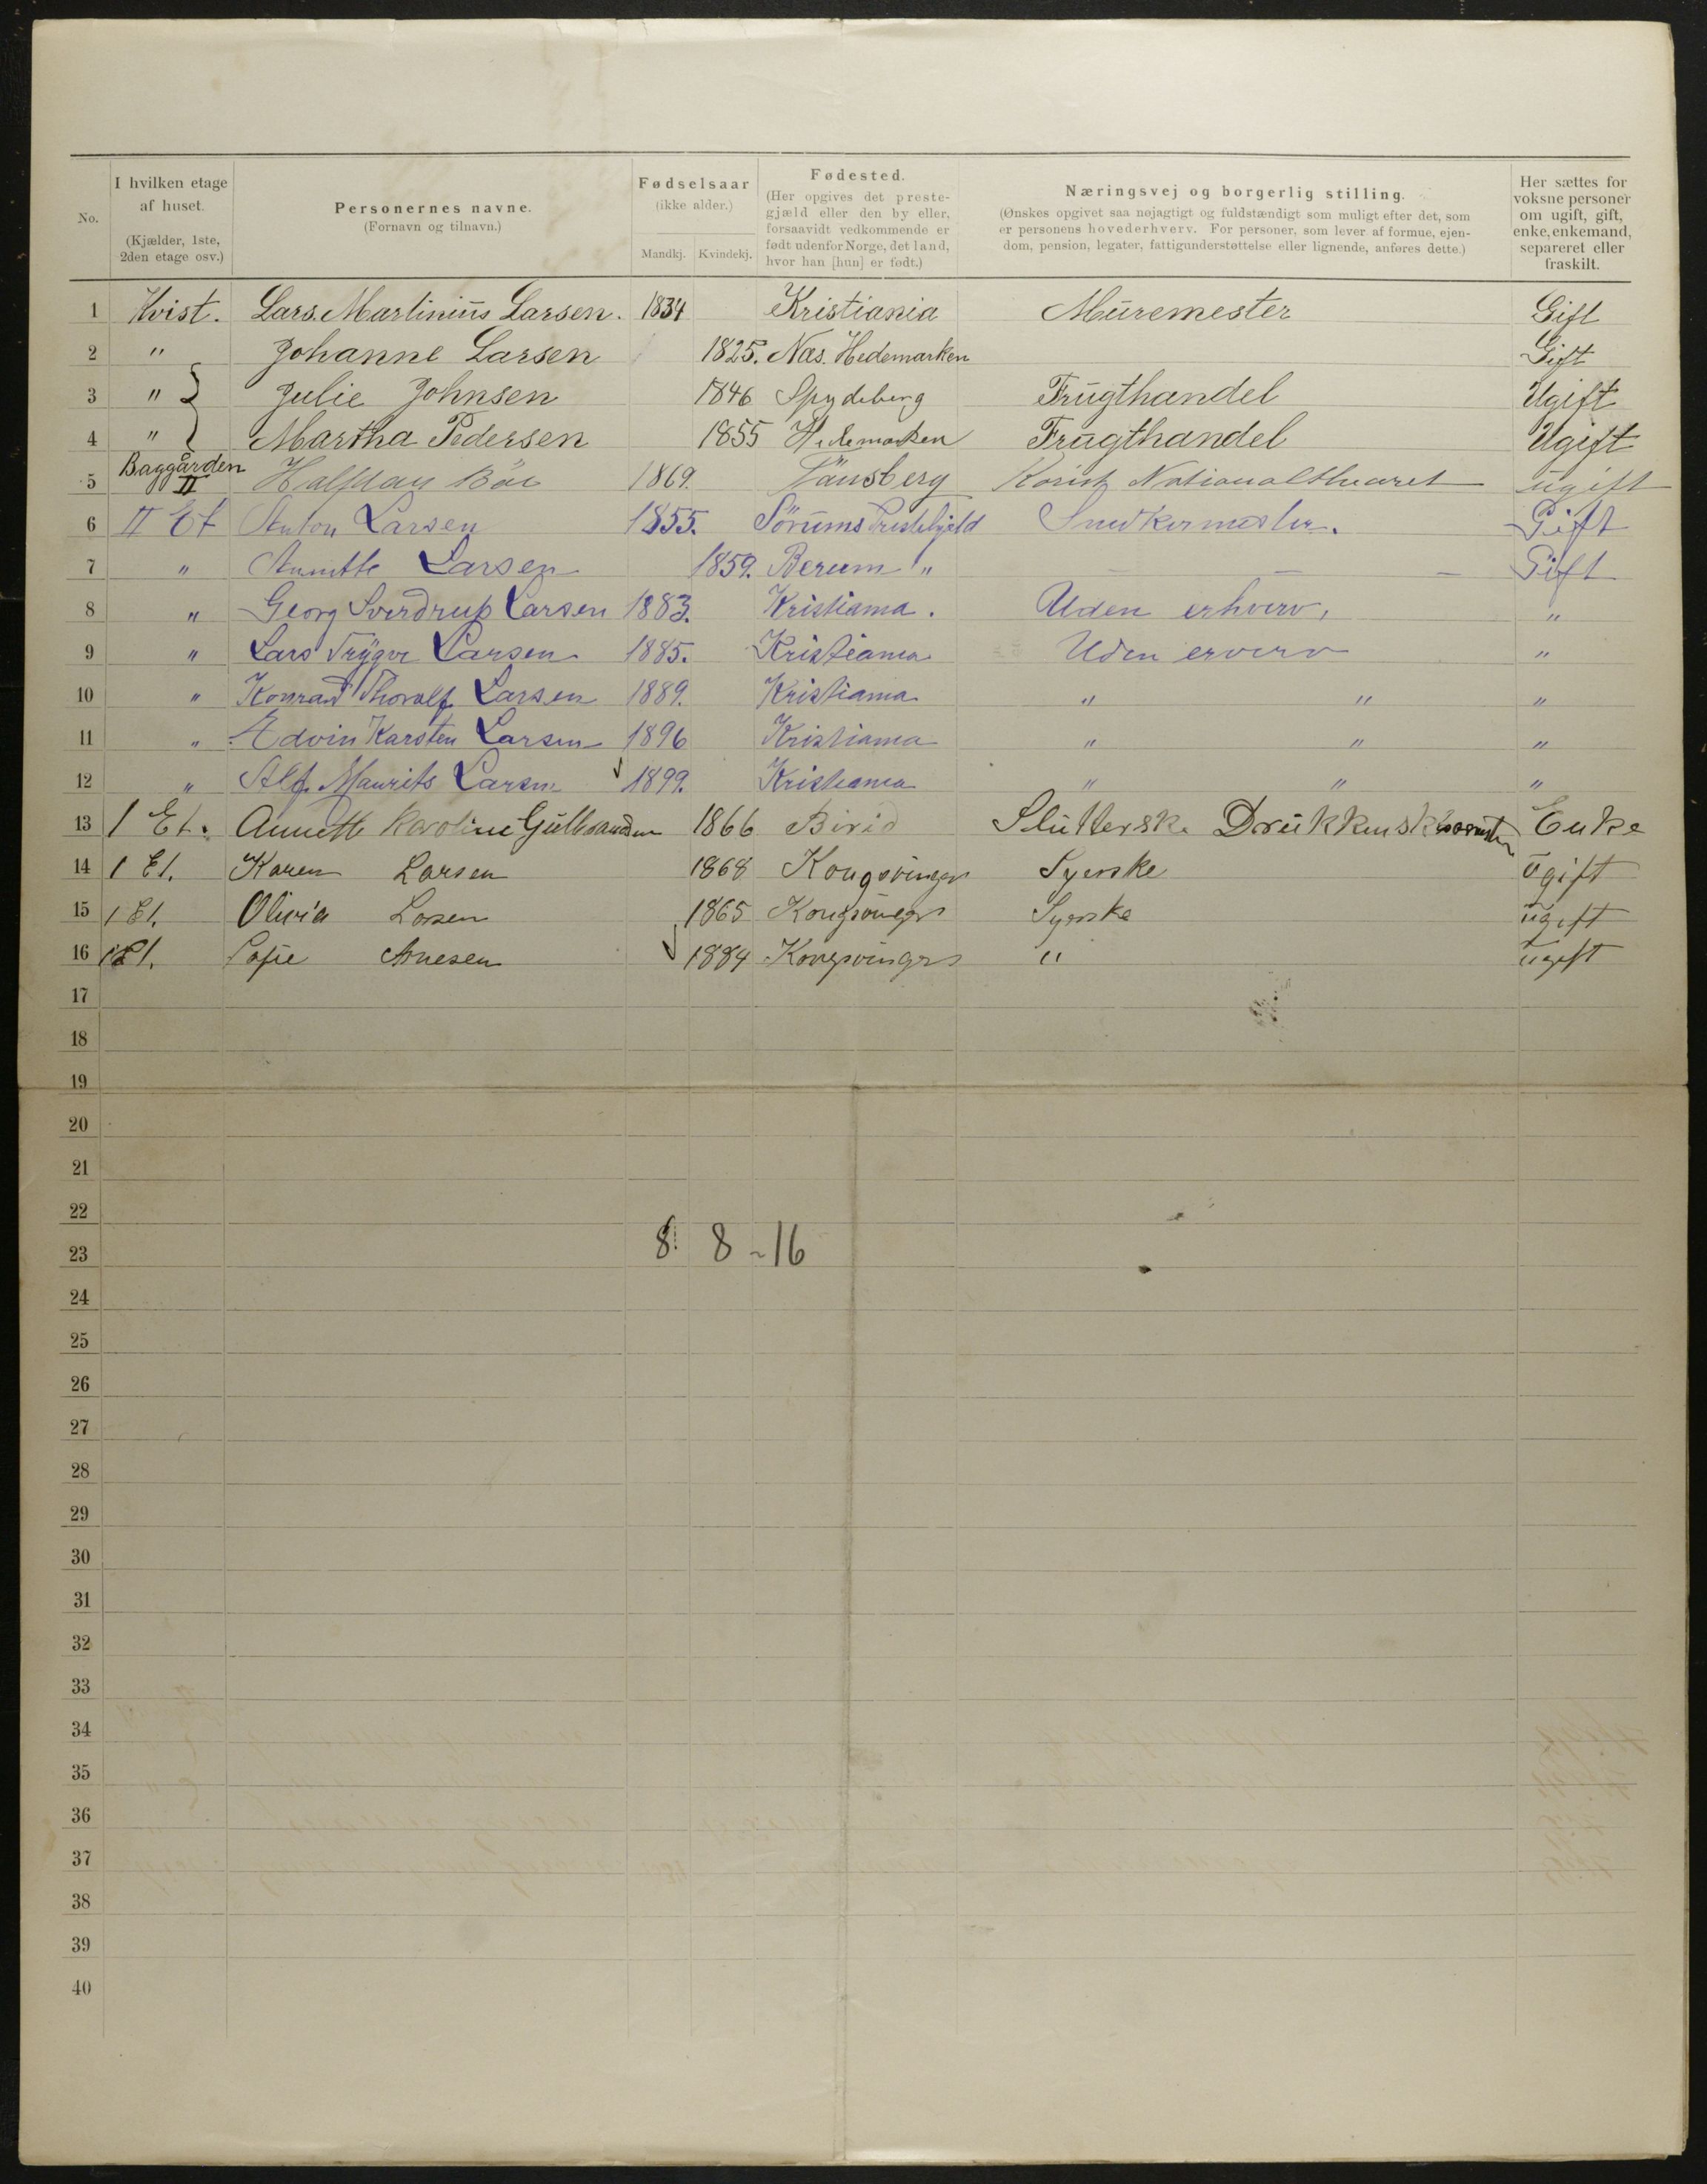 No.
I hvilken etage
af huset.
(Kjælder, 1ste,
2den etage osv.)
Personernes navne.
(Fornavn og tilnavn.)
Fødselsaar
(ikke alder.)
Mandkj. Kvindekj.
Fødested.
(Her opgives det preste-
gjæld eller den by eller,
forsaavidt vedkommende er
født udenfor Norge, det land,
hvor han [hun] er født.)
Næringsvej og borgerlig stilling.
(Ønskes opgivet saa nøjagtigt og fuldstændigt som muligt efter det, som
er personens hovederhverv. For personer, som lever af formue, ejen-
dom, pension, legater, fattigunderstøttelse eller lignende, anføres dette.)
Her sættes for
voksne personer
om ugift, gift,
enke, enkemand,
separeret eller
fraskilt.
1 Kvist. Lars. Martinius Larsen. 1834 Kristiania Muremester Gift
2 " Johanne Larsen 1825. Næs. Hedemarken Gift
3 " Julie Johnsen 1846 Spydeberg Frugthandel Ugift
4 " Martha Pedersen 1855 Hedemarken Frugthandel Ugift
5 Baggården II Halfdan 1869. Tönsberg Korist Nationaltheatret ugift
6 II Et Anton Larsen 1855. Sörums Prestegjeld Snedkermester. Gift
7 " Annette Larsen 1859. Berum " — — — Gift
8 " Georg Sverdrup Larsen 1883. Kristiania. Uden erhverv, "
9 " Lars Trygve Larsen 1885. Kristiania Uden erverv "
10 " Konrad Thoralf Larsen 1889. Kristiania " " "
11 " Edvin Karsten Larsen 1896 Kristiania " " "
12 " Alf. Maurits Larsen 1899. Kristiania " " "
13 1 Et. Annette Karoline 1866 Birid Slutterske Enke
14 1 Et. Karen Larsen 1868 Kongsvinger Syerske Ugift
15 1 Et. Olivia Larsen 1865 Kongsvinger Syerske ugift
16 1 Et. Sofie Arnesen 1884 Kongsvinger " ugift
17
18
19
20
21
22
23 8. 8 - 16
24
25
26
27
28
29
30
31
32
33
34
35
36
37
38
39
40